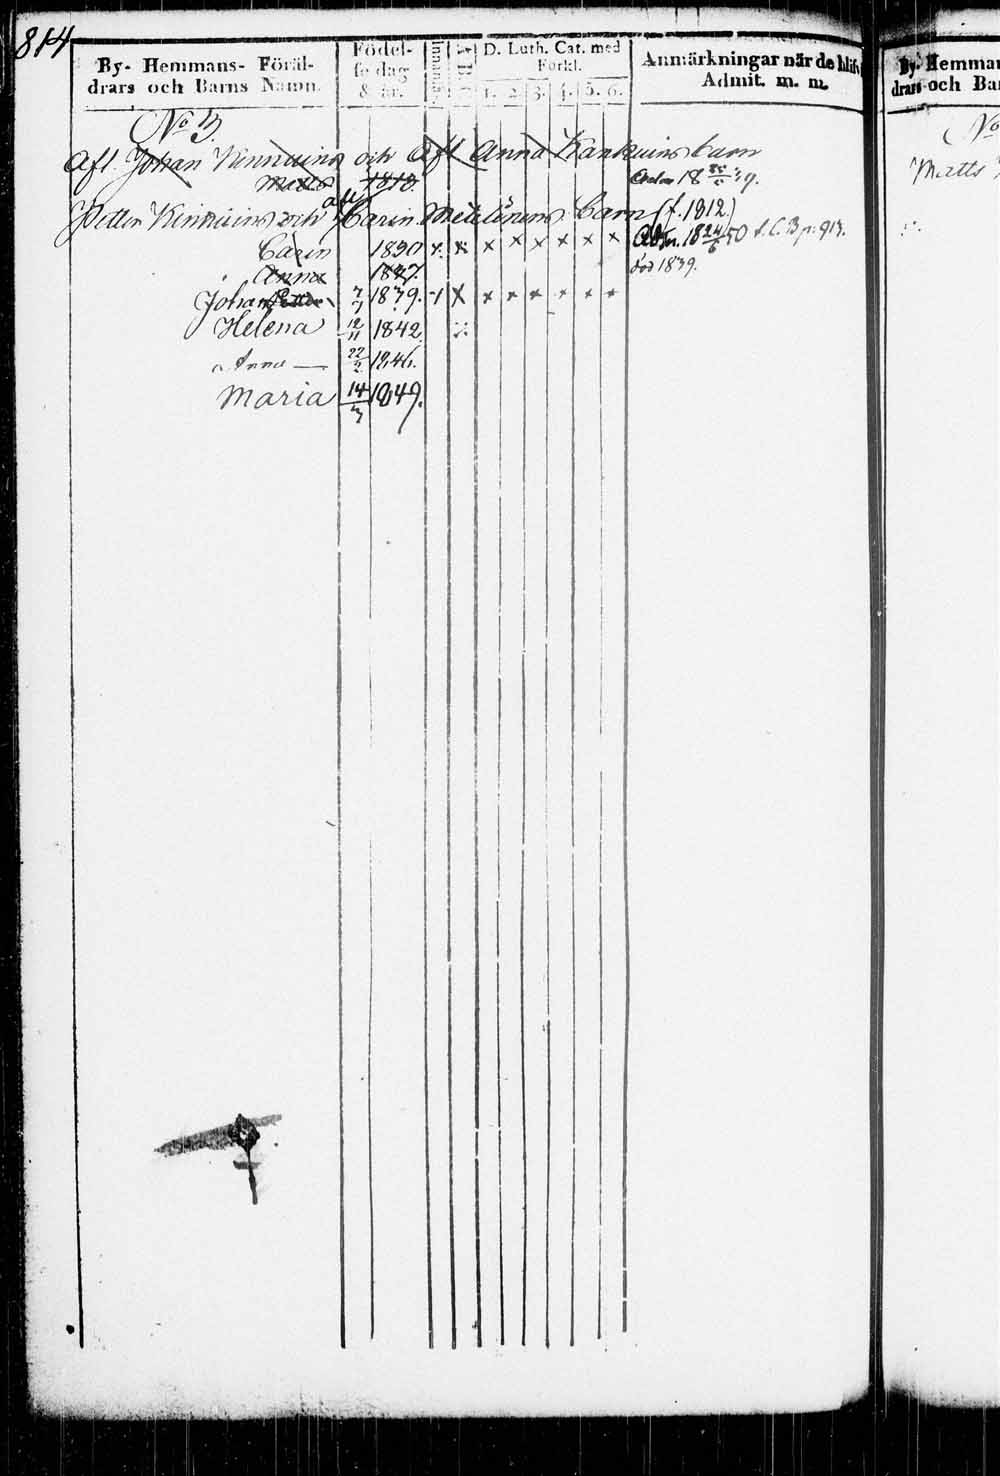 814
By- Hemmans- Föräl-
drars och Barns Namn.
Födel-
se dag
& år.
Innanläs.
A. B. C.
D. Luth. Cat. med
Forkl.
1. 2. 3. 4. 5. 6.
Anmärkningar när de blifv
Admit. m. m.
No 3.
Afl. Johan Kinnuins och Afl Anna Kankuins barn
Matts 1818. 18 39.
Petter Kinnuins och afl Carin Barn (f. 1812.)
Carin 1830 x. x x x x x x x Adm. 18 24/6 50 s. C. B p. 913.
Anna 1837. död 1839.
Johan 7/7 1839. -1 x x x x x x x
Helena 12/11 1842.
Anna — 22/2 1846.
Maria 14/3 1849.
By- Hemman
drars och Bar
No
Matts